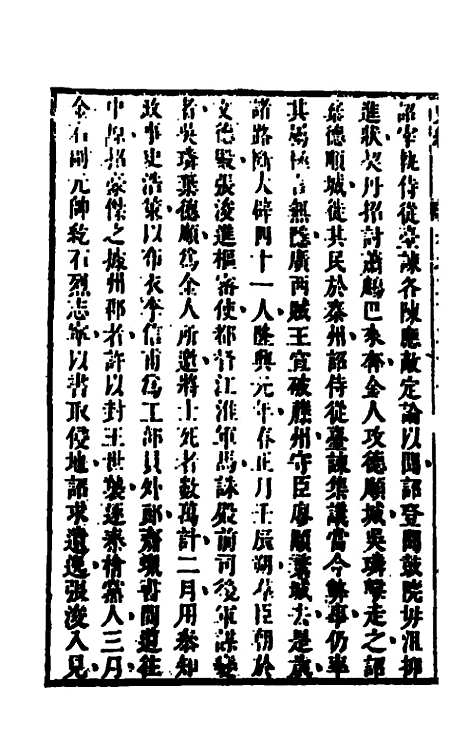 詔宰執侍從臺諫各陳應敵定論以聞詔登聞鼓院毋沮抑
進狀契丹招討蕭鷓巴來奔金人攻德順城吳璘擊走之詔
棄德順城徙其民於秦州詔侍從臺諫集議當今弊事仍率
其屬極言無隱廣西賊王宣破藤州守臣廖顒棄城去是歲
諸路斷大辟四十一人隆興元年春正月壬辰朔羣臣朝於
文德殿張浚進樞密使都督江淮軍馬誅殿前司後軍謀變
者吳璘棄德順爲金人所邀將士死者數萬計二月用泰知
政事史浩策以布衣李信甫爲工部員外郎齎蠟書間道往
中原招豪傑之據州郡者許以封王世襲逐秦檜黨人三月
金右副元帥紇石烈志寧以書取侵地詔求遺逸張浚入見